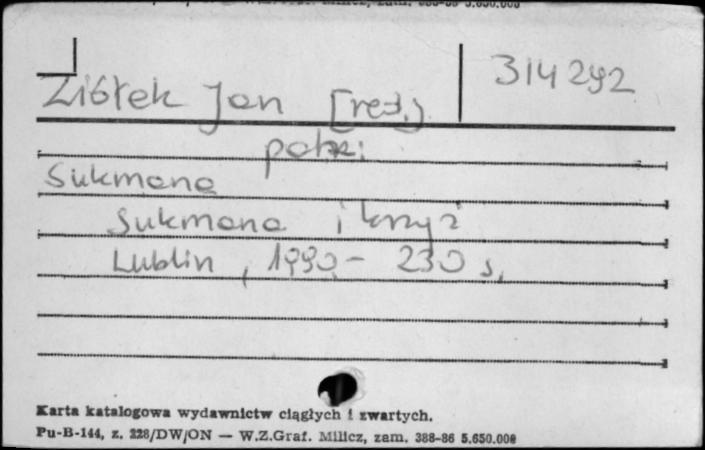 314292
Ziółek Jan [red.]
patrz:
Sukmana
Sukmana i krzyż
Lublin, 1990.- 230 s.
Karta katalogowa wydawnictw ciągłych i zwartych.
Pu-B-144, z. 228/DW/ON — W.Z.Graf. Milicz, zam. 388-86 5.650.000